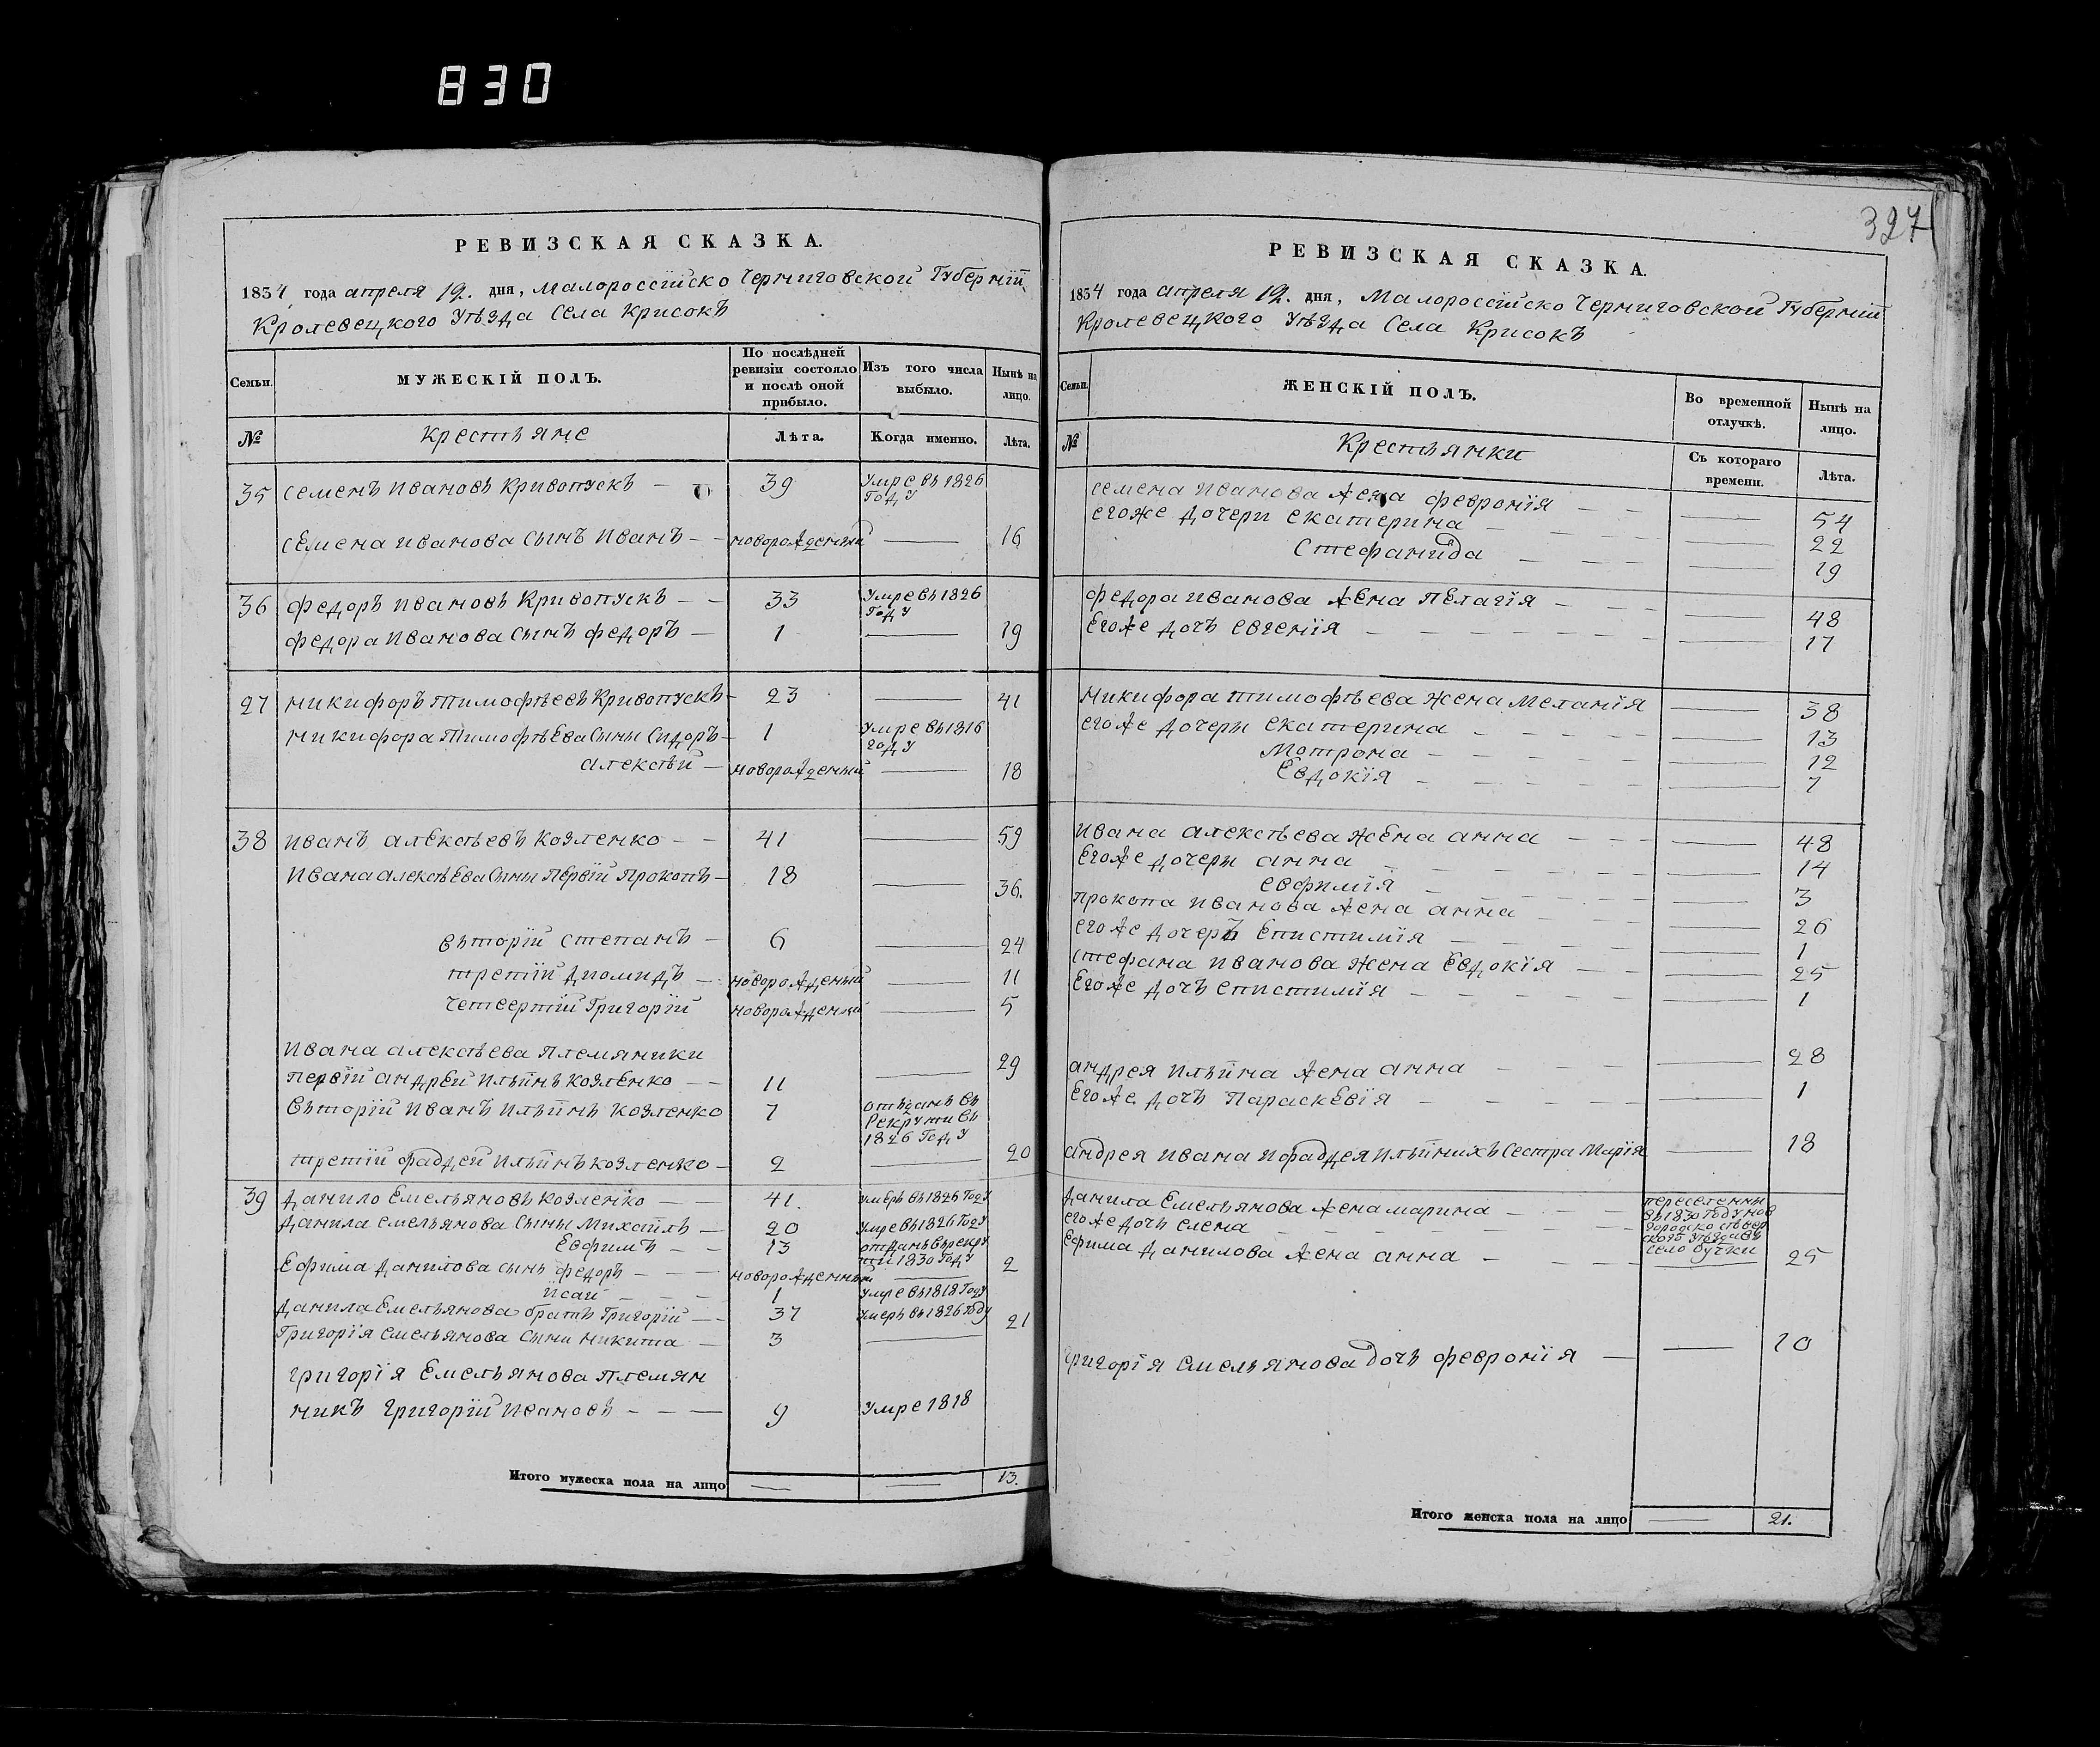 830
РЕВИЗСКАЯ СКАЗКА.
1834 года апреля 19. дня, Малороссійско Черниговской Губерніи
Кролевецкого Уѣзда Села Крисокъ
Семьи.
МУЖЕСКІЙ ПОЛЪ.
По послѣдней ревизіи состояло и послѣ оной прибыло.
Изъ того числа выбыло.
Нынѣ на лицо.
№ Крестьяне Лѣта. Когда именно. Лѣта.
35 семенъ ивановъ Кривопускъ 39 Умре въ 1826 Году
семена иванова сынъ иванъ новорожденный 16
36 федоръ ивановъ Кривопускъ 33 Умре въ 1826 Году
федора иванова сынъ федоръ 1 19
27 никифоръ тимофѣевъ Кривопускъ 23 41
никифора тимофѣева сыны Сидоръ 1 Умре въ 1816 году
алексѣй новорожденный 18
38 иванъ алексѣевъ козленко 41 59
ивана алексѣева сыны первій Прокопъ 18 36.
въторій степанъ 6 24
третій диомидъ новорожденый 11
четвертій Григорій новорожденый 5
ивана алексѣева племяники
первій андрей ильинъ козленко 11 29
въторій иванъ ильинъ козленко 7 отъданъ въ Рекруты въ 1826 Году
третій фаддей ильинъ козленко 2 20
39 данило Емельяновъ козленко 41. умеръ въ 1826 Году
данила емельянова сыны Михаилъ 20 Умре въ 1826 Году
Евфимъ 13 отданъ въ рекруты 1830 Году
Ефима данилова сынъ федоръ новорожденный 2
исай 1 Умре въ 1818 Году
данила Емельянова братъ Григорій 37 Умеръ въ 1826 Году
Григорія емельянова сыни никита 3 21
григорія Емельянова племян
никъ григорій ивановъ 9 Умре 1818
Итого мужеска пола на лицо 13.
327
РЕВИЗСКАЯ СКАЗКА.
1834 года апреля 19. дня, Малороссійско Черниговской Губерніи
Кролевецкого Уѣзда Села Крисокъ
Семьи.
ЖЕНСКІЙ ПОЛЪ.
Во временной отлучкѣ.
Нынѣ на лицо.
№ Крестьянки Съ котораго времени. Лѣта.
семена иванова жена феврония 54
егоже дочери екатерина 22
стефанида 19
федора иванова жена пелагія 48
Егоже дочъ евгенія 17
никифора тимофѣева жена меланія 38
егоже дочеры екатерина 13
мотрона 12
Евдокія 7
ивана алексѣева жена анна 48
Егоже дочеры анна 14
евфимія 3
прокопа иванова жена анна 26
егоже дочеръ Епистимія 1
стефана иванова жена Евдокія 25
Егоже дочъ епистимія 1
андрея ильина жена анна 28
Егоже дочъ Параскевія 1
андрея ивана и фаддея ильиныхъ сестра Марія 18
данила Емельянова жена марина переселенны въ 1830 Году нов
егоже дочъ елена городско сѣвер ской уѣздъ въ село бучки
Ефима данилова жена анна 25
григорія емельянова дочъ февронія 10
Итого женска пола на лицо 21.